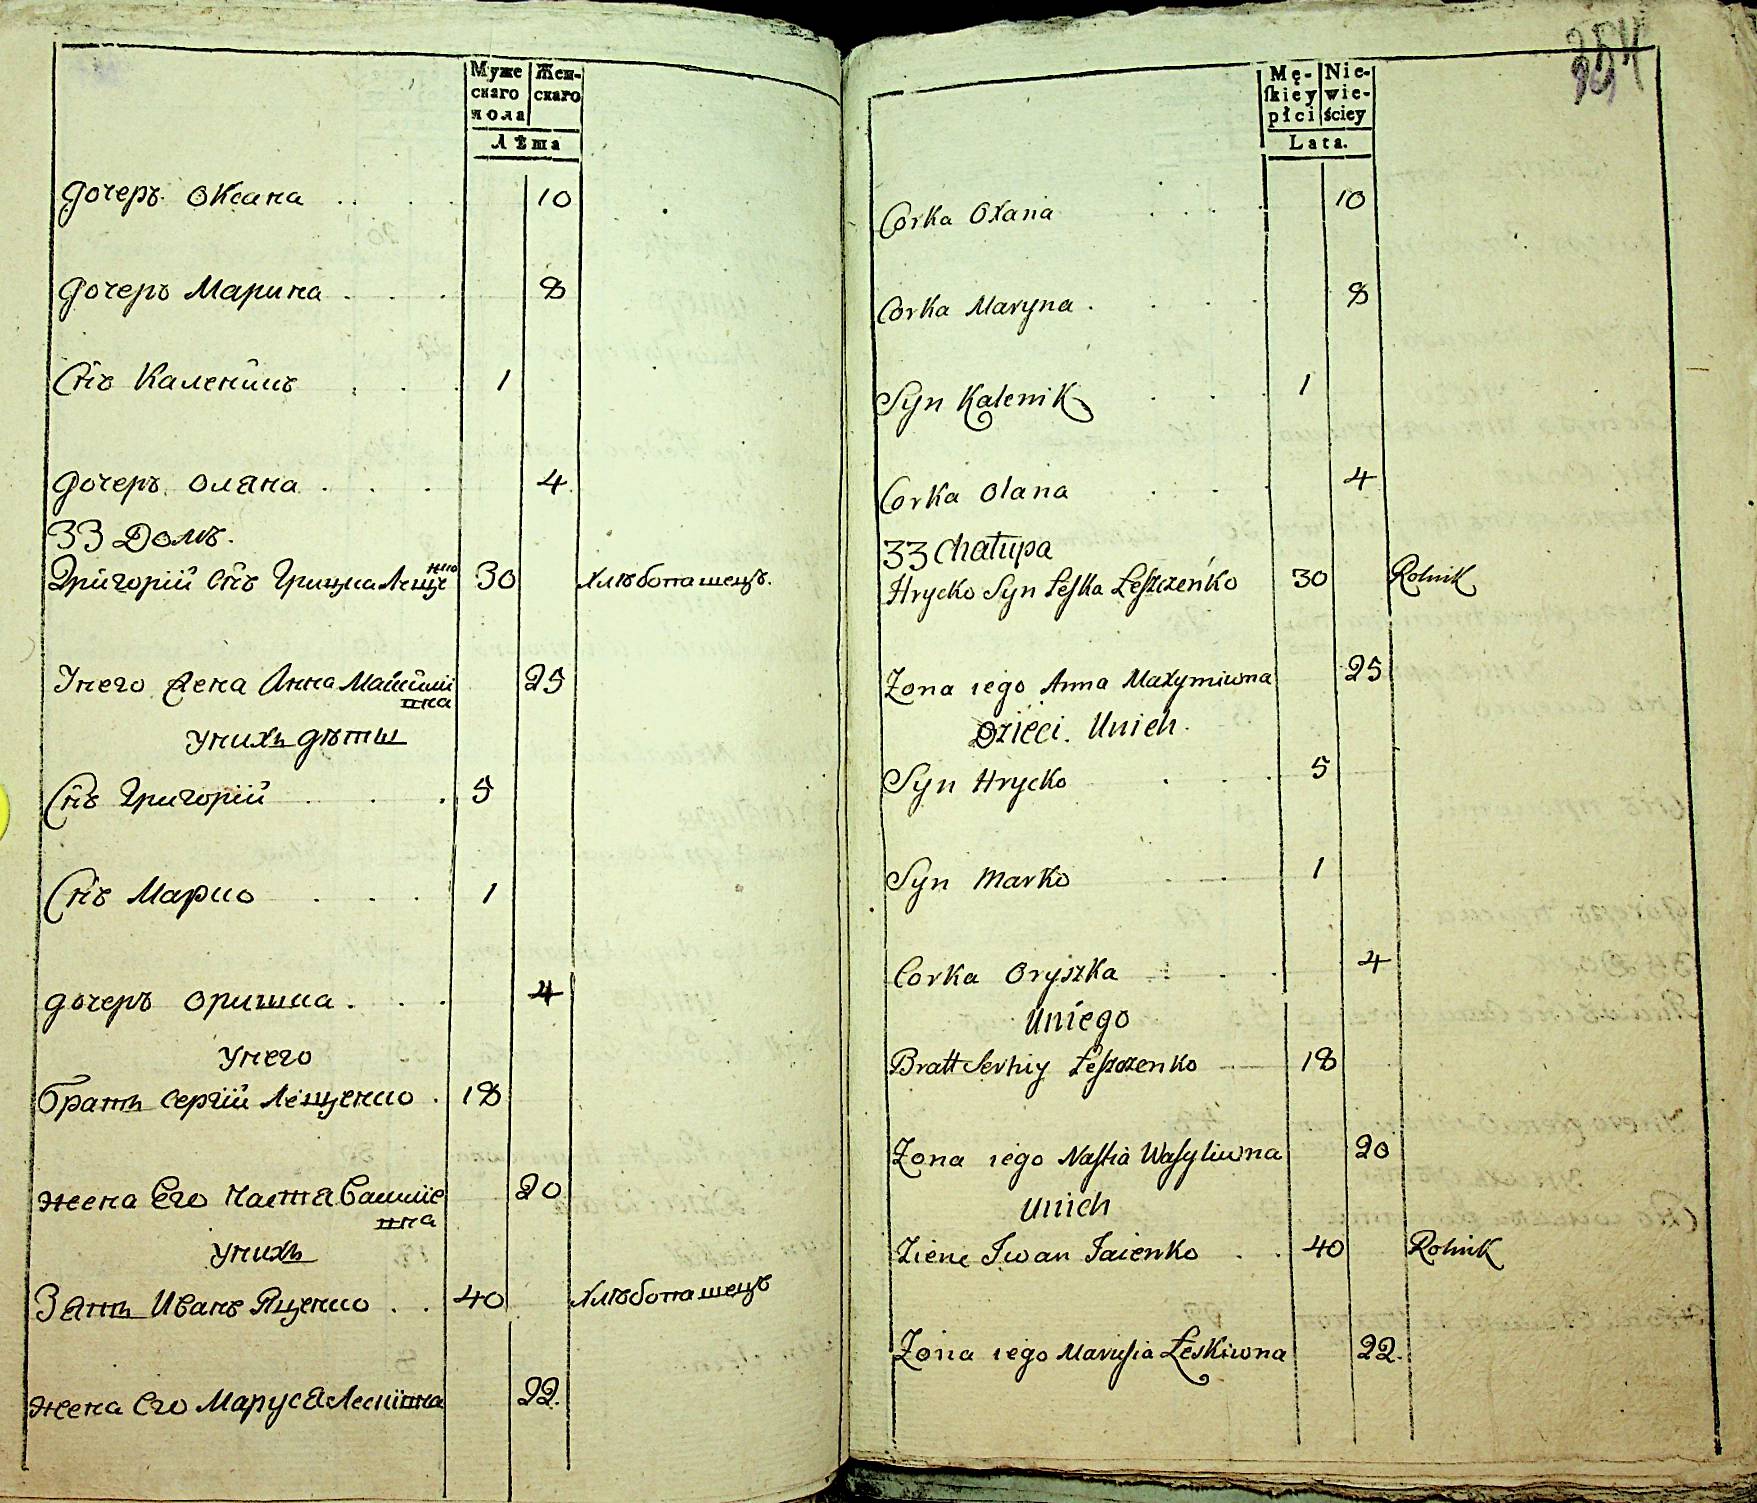 Муже Жен-
скаго скаго
пола
Лѣта
дочеръ Оксана . . . . 10
дочеръ Марина . . . 8
Сн҃ъ Каленикъ . . . 1
дочеръ Оляна . . . 4
33 Домъ.
Григорій Сн҃ъ Грицка Леще 30 Хлѣбопашецъ.
нко
Унего жена Анна Макъсимі 25
вна
унихъ дѣти
Сн҃ъ Григорій . . . . 5
Сн҃ъ Марко . . . 1
дочеръ Оришка . . . 4
Унего
братъ Сергій Лещенко . 18
жена Его Настя Василіе 20
вна
унихъ
Зять Иванъ Яценко . . 40 Хлѣбопашецъ
жена Его Маруся Лесківна 22.
354
Mę- Nie-
ſkiey wie-
płci ściey
Lata.
Corka Oxana . . . . 10
Corka Maryna . . . . 8
Syn Kalenik . . . 1
Corka Olana . . . 4
33 Chałupa
Hrycko Syn Leſka Leſzczeńko 30 Rolnik
Zona iego Anna Maxymiwna 25
Dzieci Unich.
Syn Hrycko . . . 5
Syn Marko . . 1
Corka Oryszka . . . 4
Uniego
Bratt Serhiy Leſzczenko 18
Zona iego Naſtia Waſyliwna 20
Unich
Ziენć Iwan Iacenko . . 40 Rolnik
Zona iego Maruſia Łeskiwna 22.